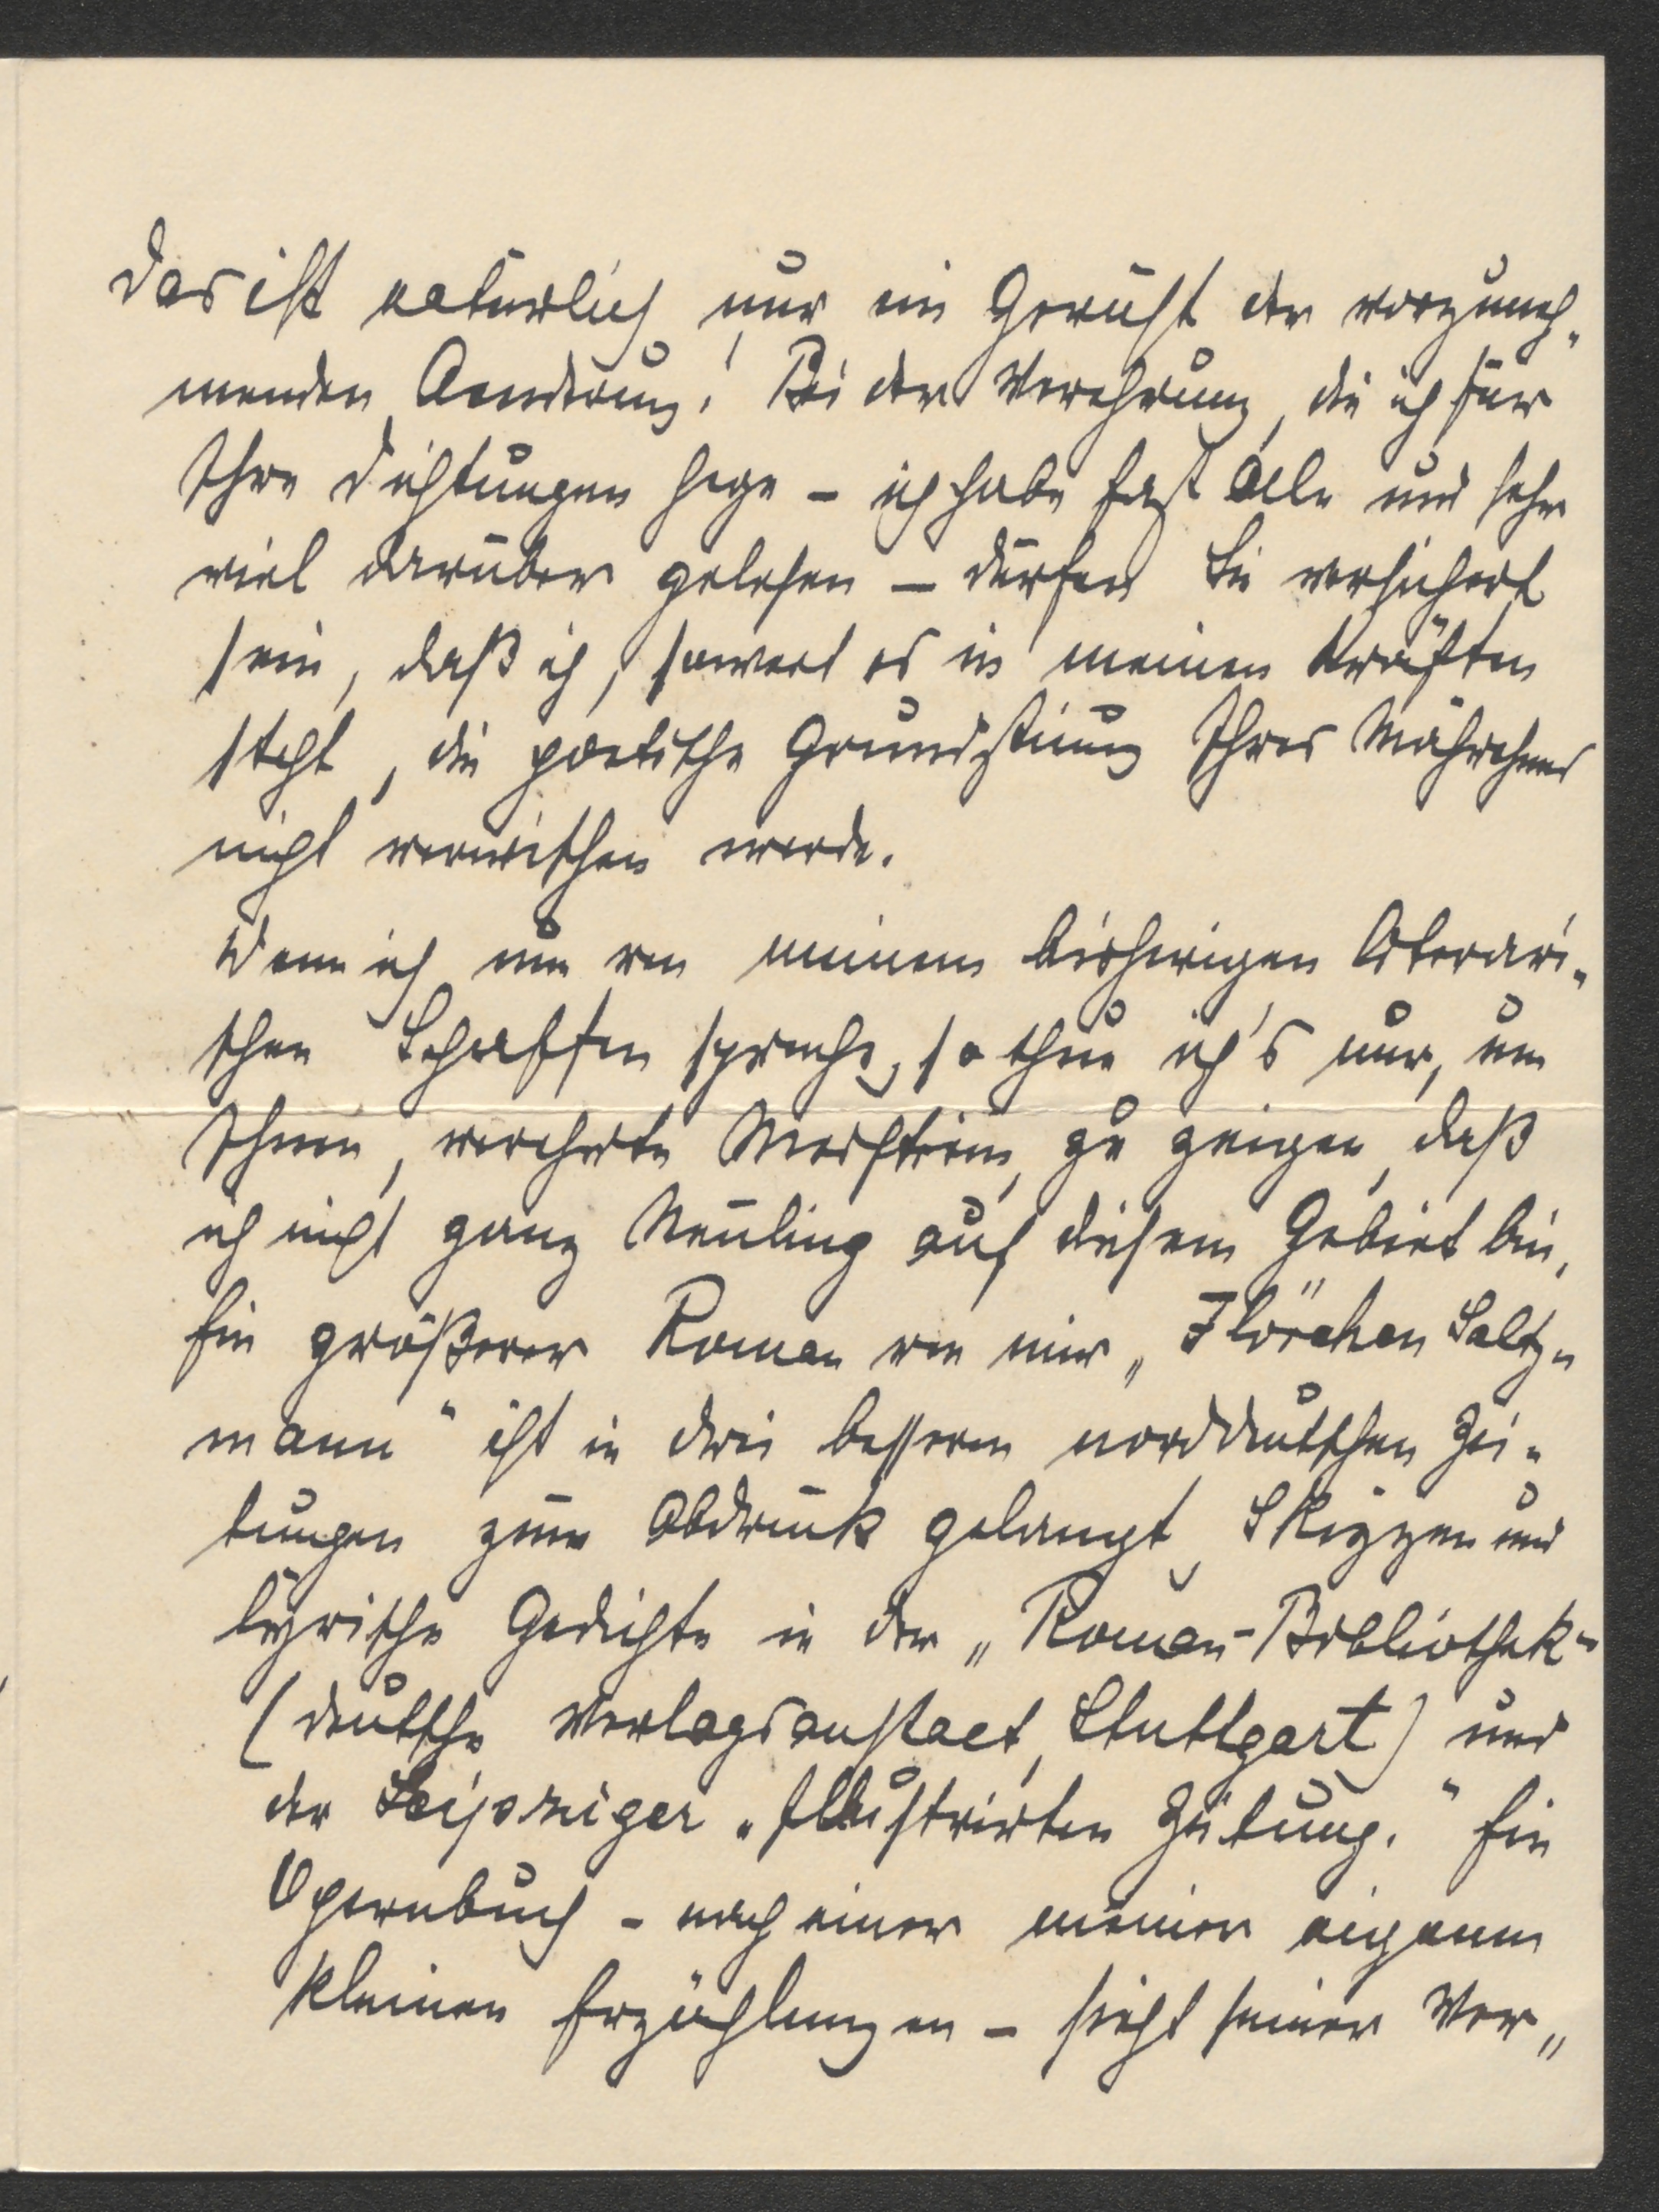 Das ist natürlich nur ein Gerüst der vorzuneh-
menden Aenderung! Bei der Verehrung, die ich für
Ihre Dichtungen hege – ich habe fast Alle und sehr
viel darüber gelesen – dürfen Sie versichert
sein, daß ich, soweit es in meinen Kräften
steht, die poetische Grundstimmung Ihres Mährchens
nicht verwischen werde.
Wenn ich nun von meinem bisherigen literari-
schen Schaffen spreche, so thue ich's nur, um
Ihnen, verehrte Meisterin, zu zeigen, daß
ich nicht ganz Neuling auf diesem Gebiet bin,
Ein größerer Roman von mir „Flörchen Saltz-
mann" ist in drei besseren norddeutschen Zei-
tungen zum Abdruck gelangt, Skizzen und
lyrische Gedichte in der „Roman-Bibliothek"
(Deutsche Verlagsanstalt, Stuttgart) und
der Leipziger „Illustrirten Zeitung." Ein
Opernbuch – nach einer meiner eigenen
kleinen Erzählungen – sieht seiner Ver-